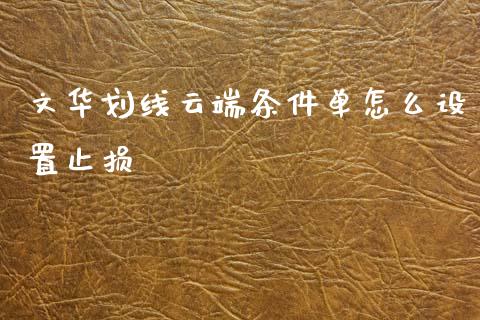 文华划线云端条件单怎么设
置止损